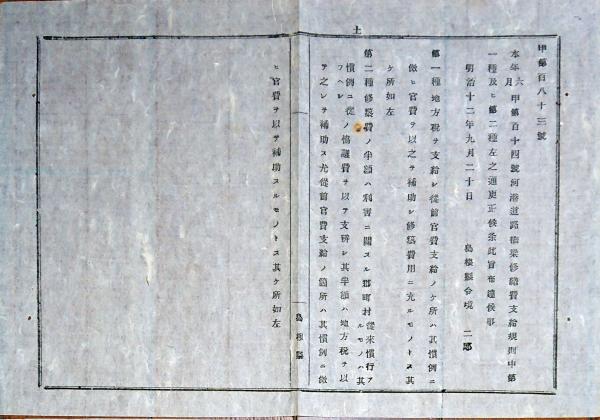 土
甲第百八十三號
本年六月甲第百十四號河港道路橋梁修繕費支給規則中第
一種及ヒ第二種左之通更正候条此旨布達候事
明治十二年九月二十日　島根縣令境　二郎
第一種地方税ヲ支給シ從前官費支給ノケ所ハ其慣例ニ
倣ヒ官費ヲ以之ヲ補助シ修築費用ニ充ルモノトス其
ケ所如左
第二種修築費ノ半額ハ利害ニ關スル郡町村從來慣行アルモノハ其
慣例ニ從ノ協議費ヲ以テ支辨シ其半額ハ地方税ヲ以
テ之レヲ補助ス尤從前官費支給ノ箇所ハ其慣例ニ倣
島根縣
ヒ官費ヲ以テ補助スルモノトス其ケ所如左